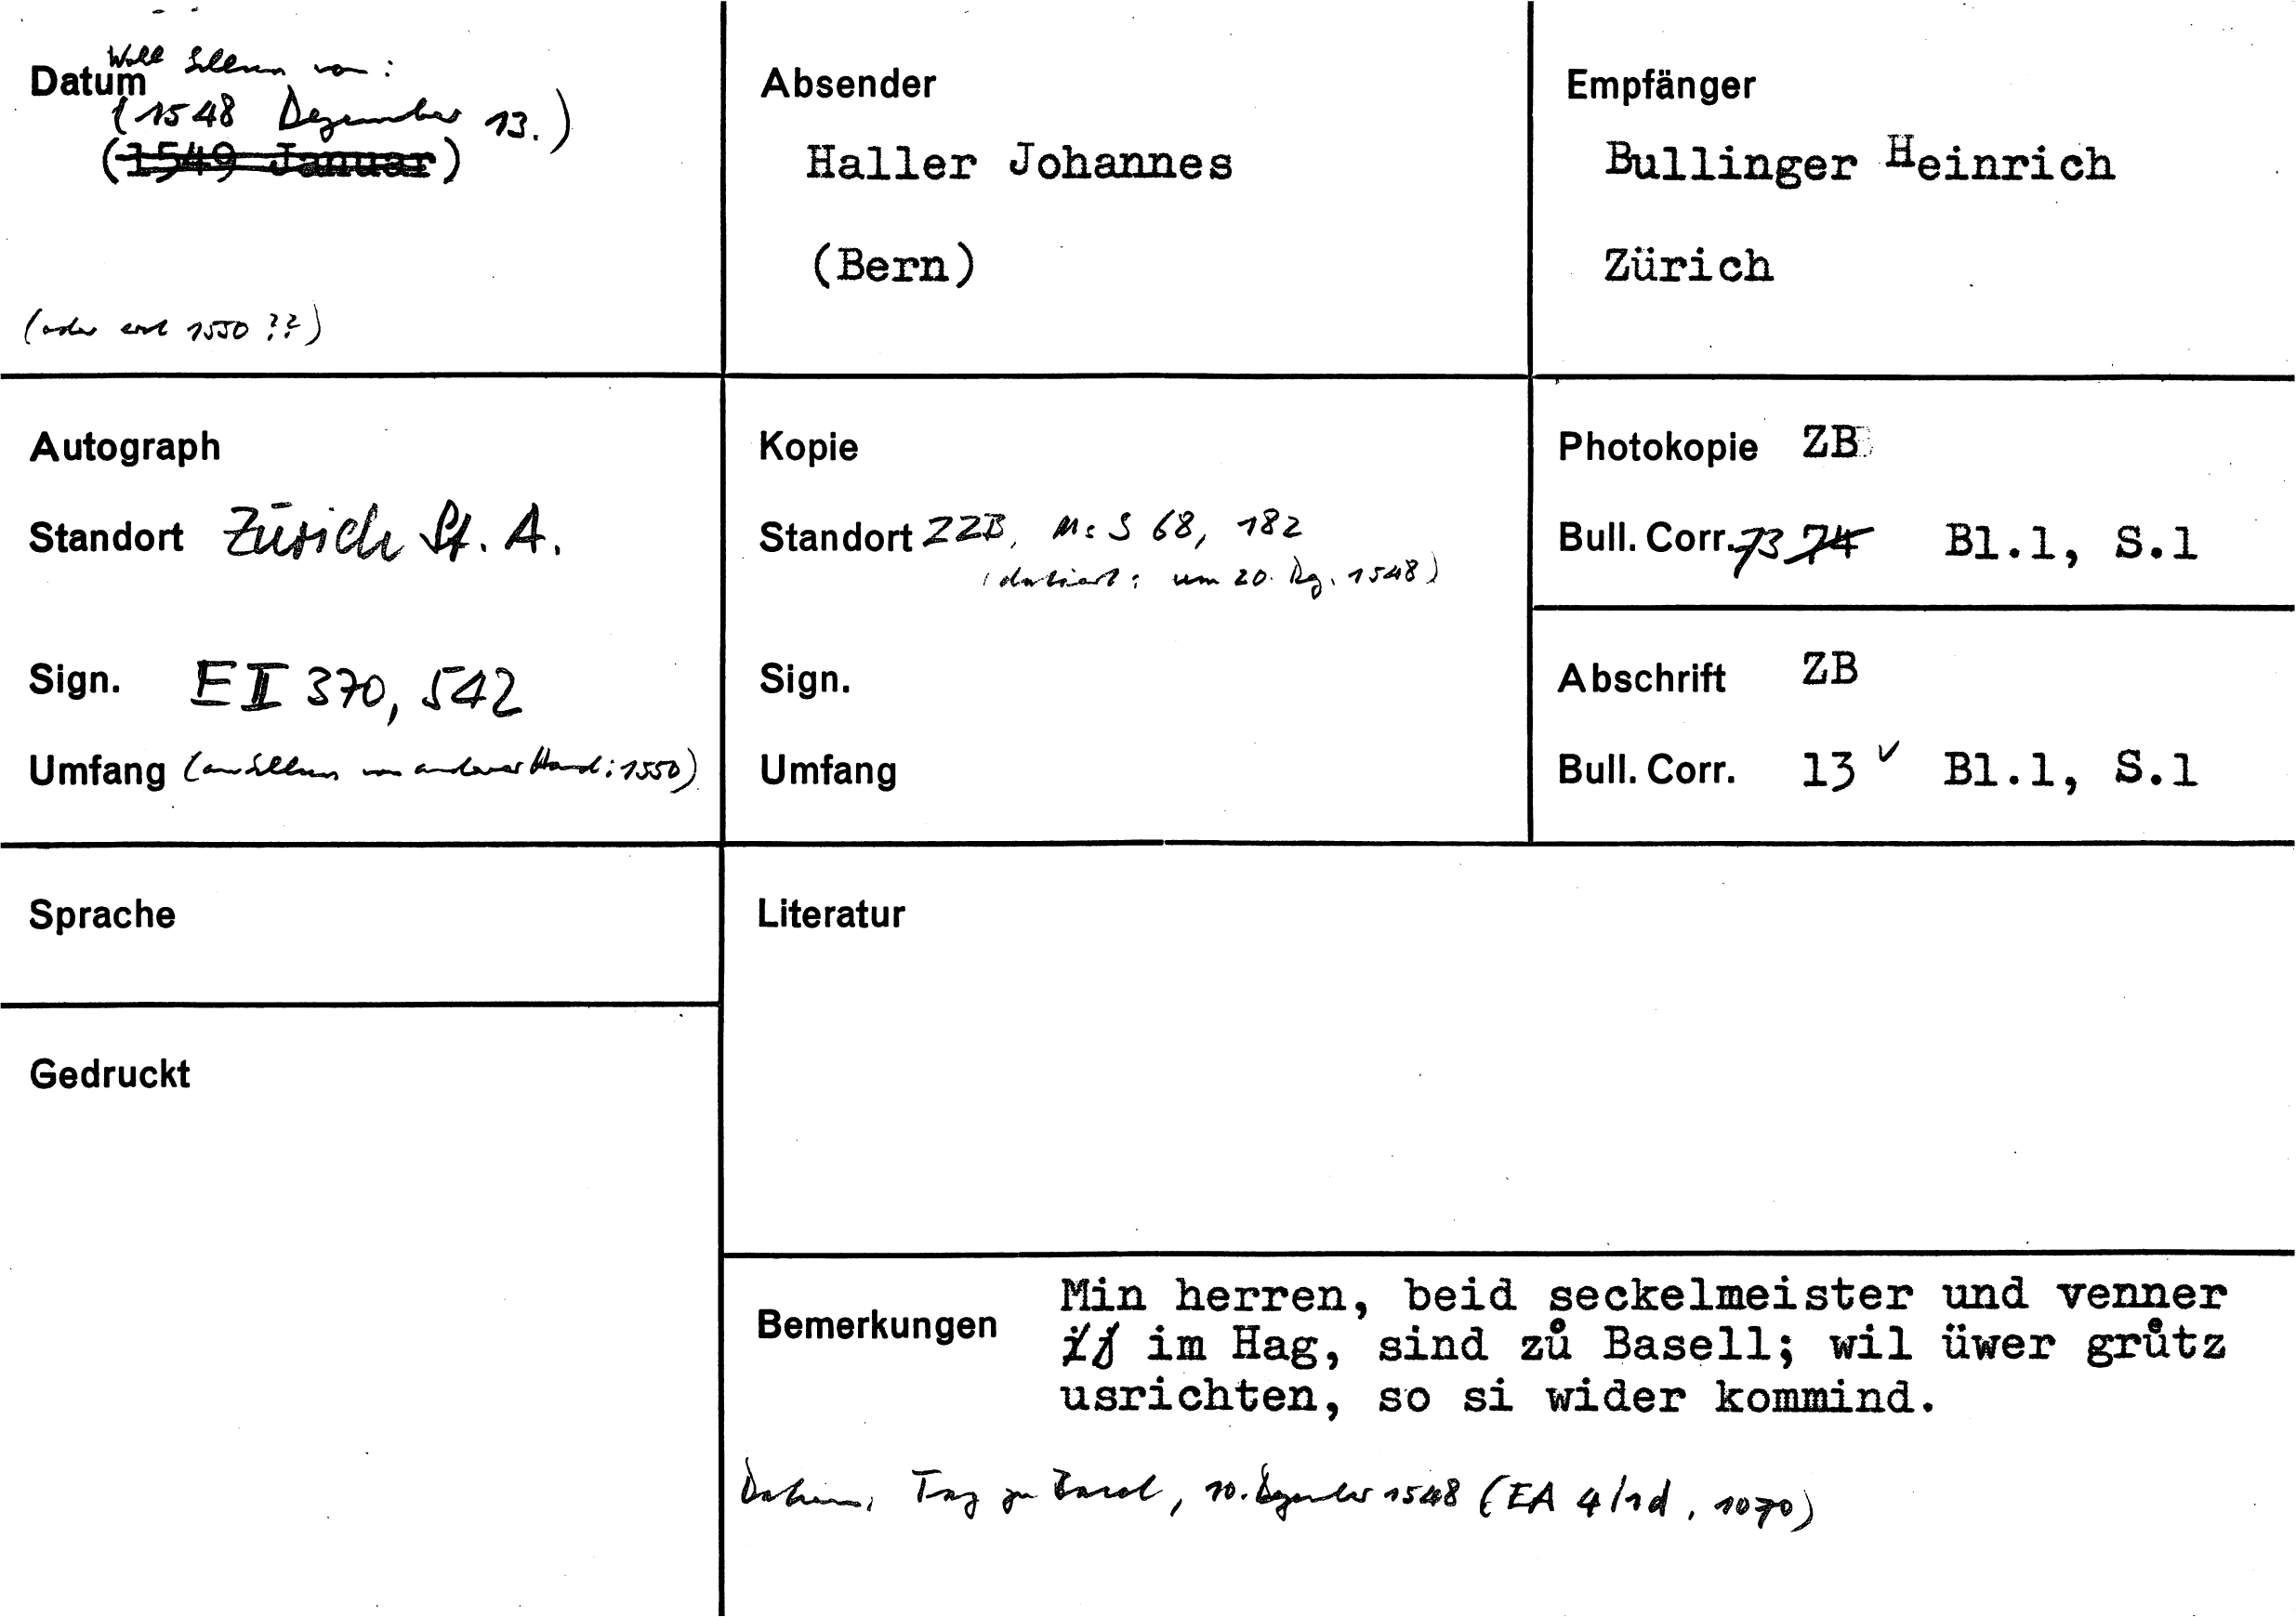 Datum
(1548 Dezember 13.)
(1549 Januar)
(oder erst 1550 ??)
Absender
Haller Johannes
(Bern)
Empfänger
Bullinger Heinrich
Zürich
Autograph
Standort Zürich St. A.
Sign. E II 370, 542
Umfang von anderer Hand: 1550)
Kopie
Standort ZZB, Ms S 68, 182
(datiert: um 20. Dez. 1548)
Sign.
Umfang
Photokopie ZB
Bull. Corr. 73 74 Bl.1, S.1
Abschrift ZB
Bull. Corr. 13 Bl.1, S.1
Sprache
Gedruckt
Literatur
Bemerkungen
Min herren, beid seckelmeister und venner
im Hag, sind zů Basell; wil üwer grůtz
usrichten, so si wider kommind.
Datum: Tag zu Basel, 10. Dezember 1548 (EA 4/1d, 1070)